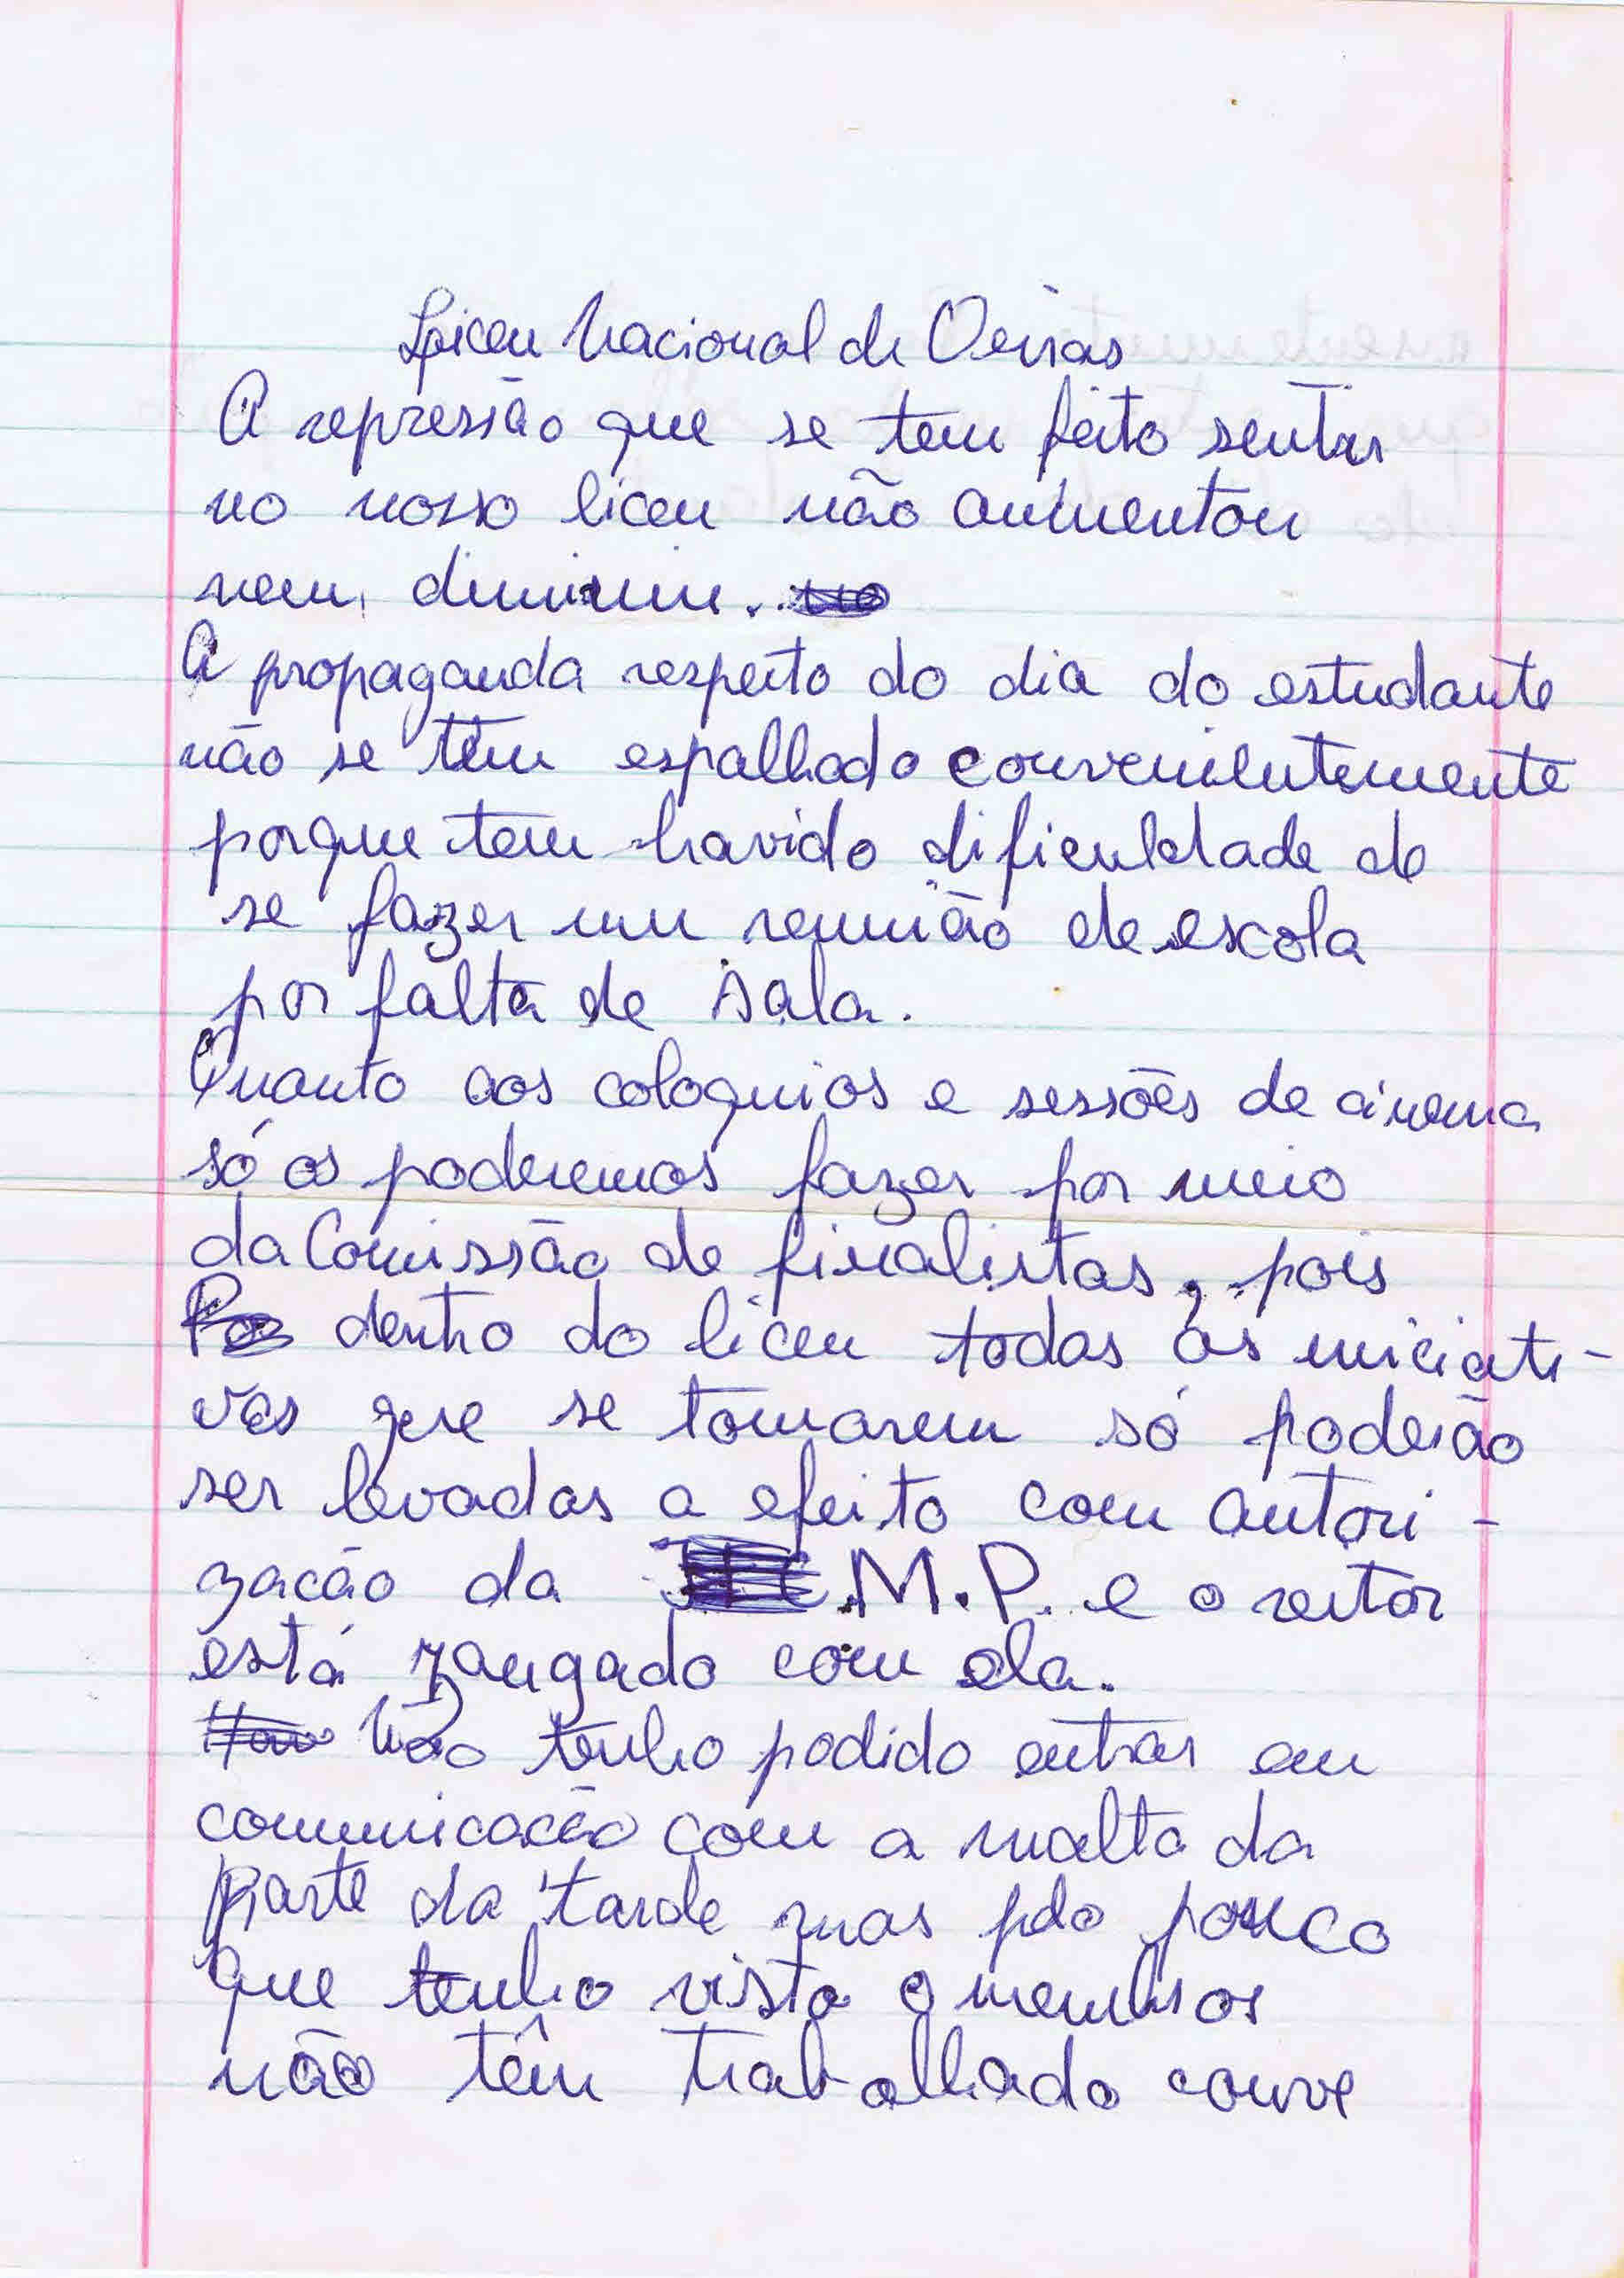 Liceu Nacional de Oeiras
A repressão que se tem feito sentir
no nosso liceu não aumentou
nem diminuiu.
A propaganda respeito do dia do estudante
não se têm espalhado convenientemente
porque tem havido dificuldade de
se fazer um reunião de escola
por falta de sala.
Quanto aos coloquios e sessões de cinema
só os poderemos fazer por meio
da Comissão de finalistas, pois
dentro do liceu todas as iniciati-
vas que se tomarem só poderão
ser levadas a efeito com autori-
zacão da M.P. e o reitor
está zangado com ela.
Não tenho podido entrar em
comunicacão com a malta da
parte da tarde mas pelo pouco
que tenho visto o membros
não têm trabalhado conve